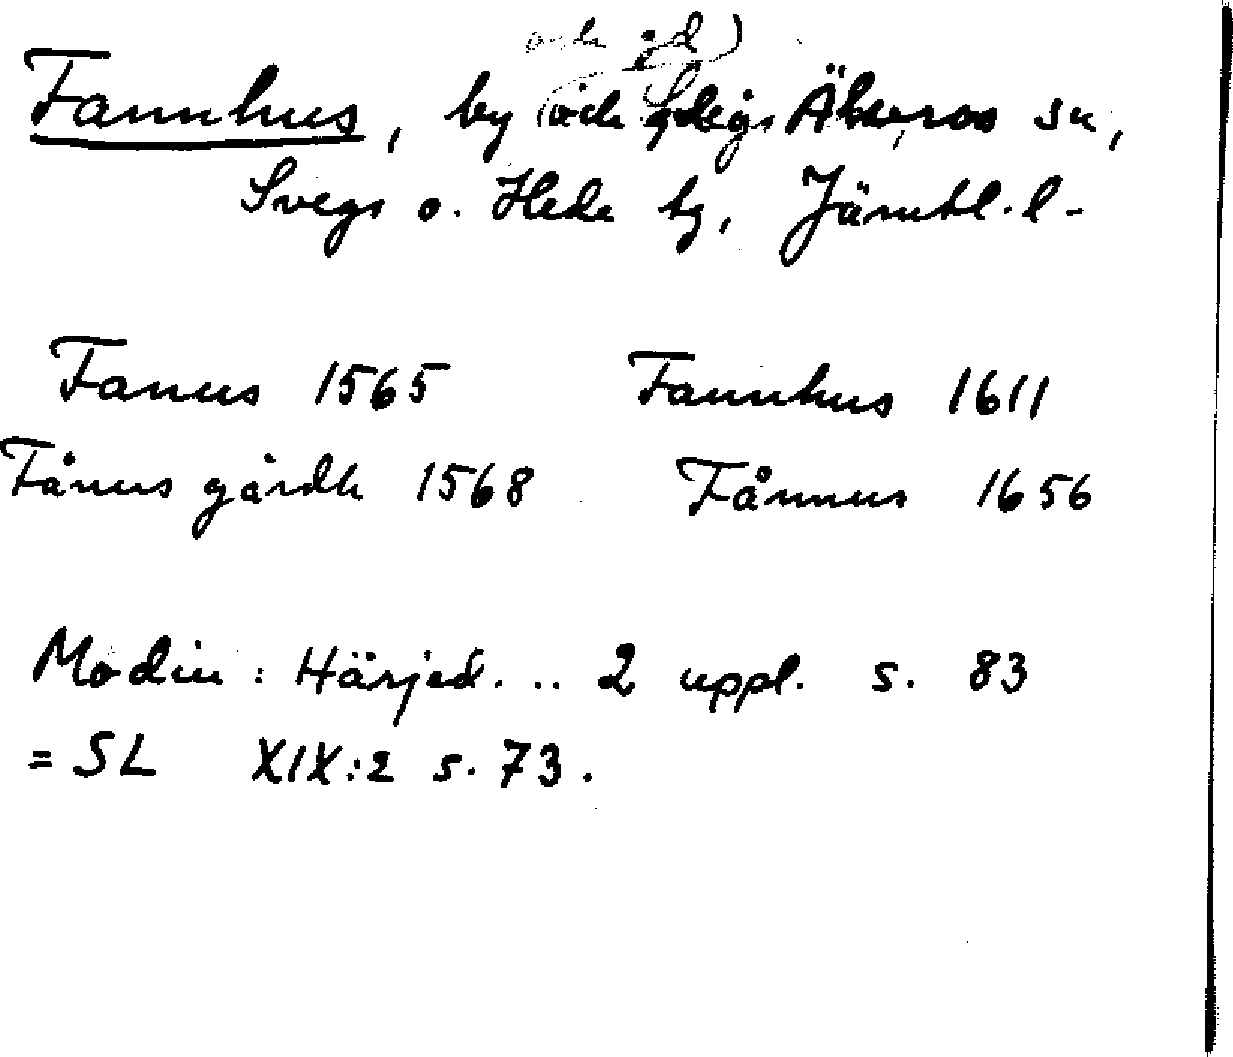 och jd)
Fannhus, by och Svegs sn,
Svegs o. Hede tg, Jämtl. l-
Fanus 1565 Fannhus 1611
Fånus gårdh 1568 Fånnus 1656
Modin: Härjed. .. 2 uppl. s. 83
= SL XIX:2 s. 73.